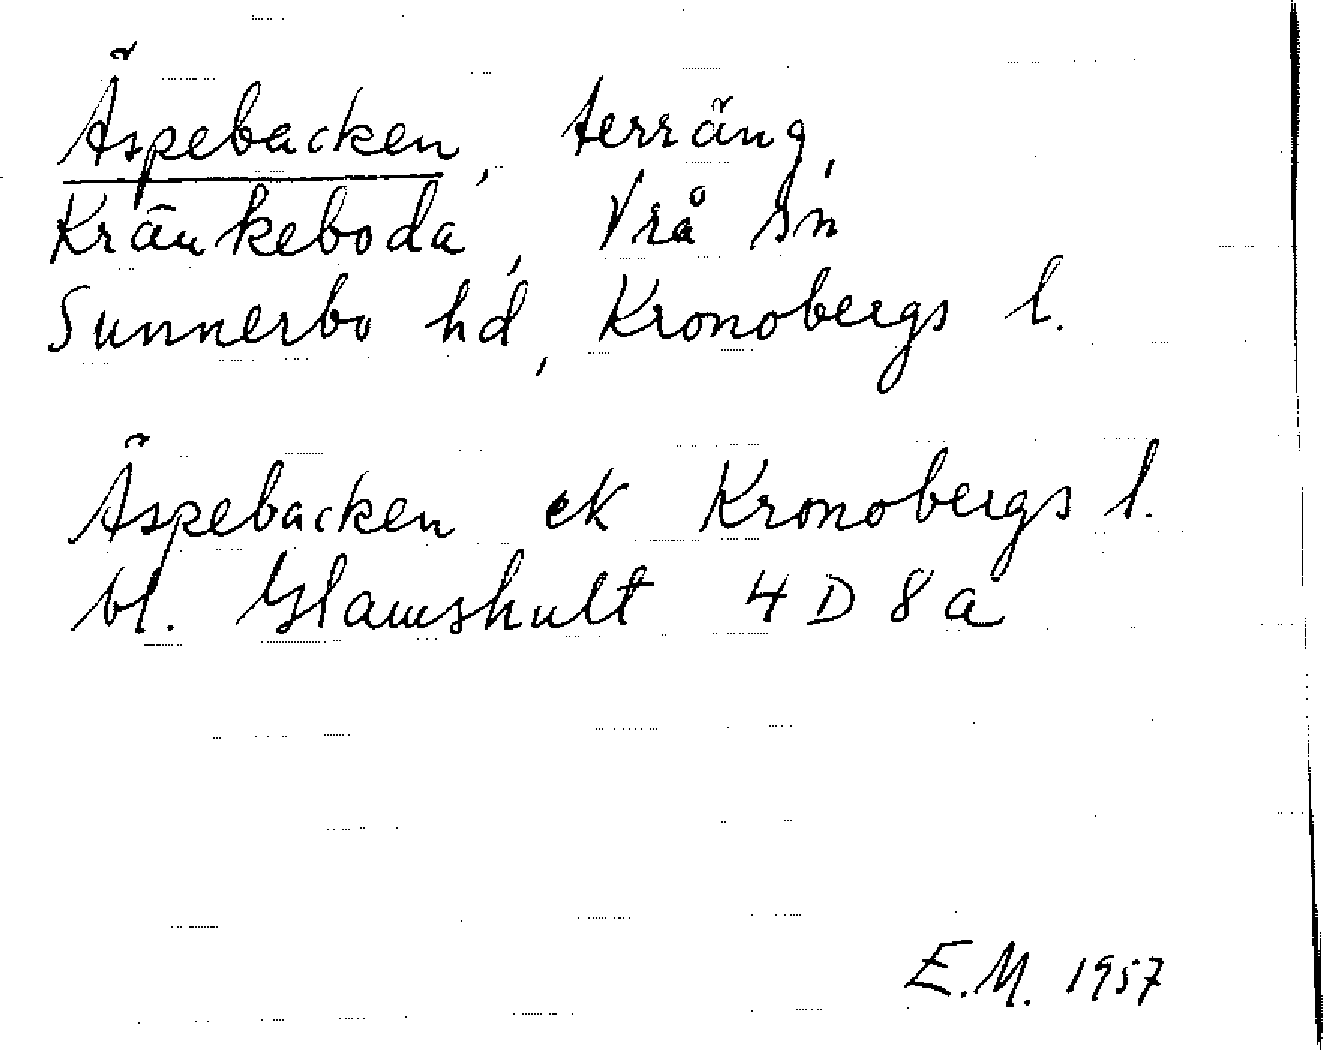 Äspebacken, terräng,
Kränkeboda, Vrå sn
Sunnerbo hd, Kronobergs l.
Äspebacken ek Kronobergs l.
bl. Glamshult 4 D 8 a
E.M. 1957